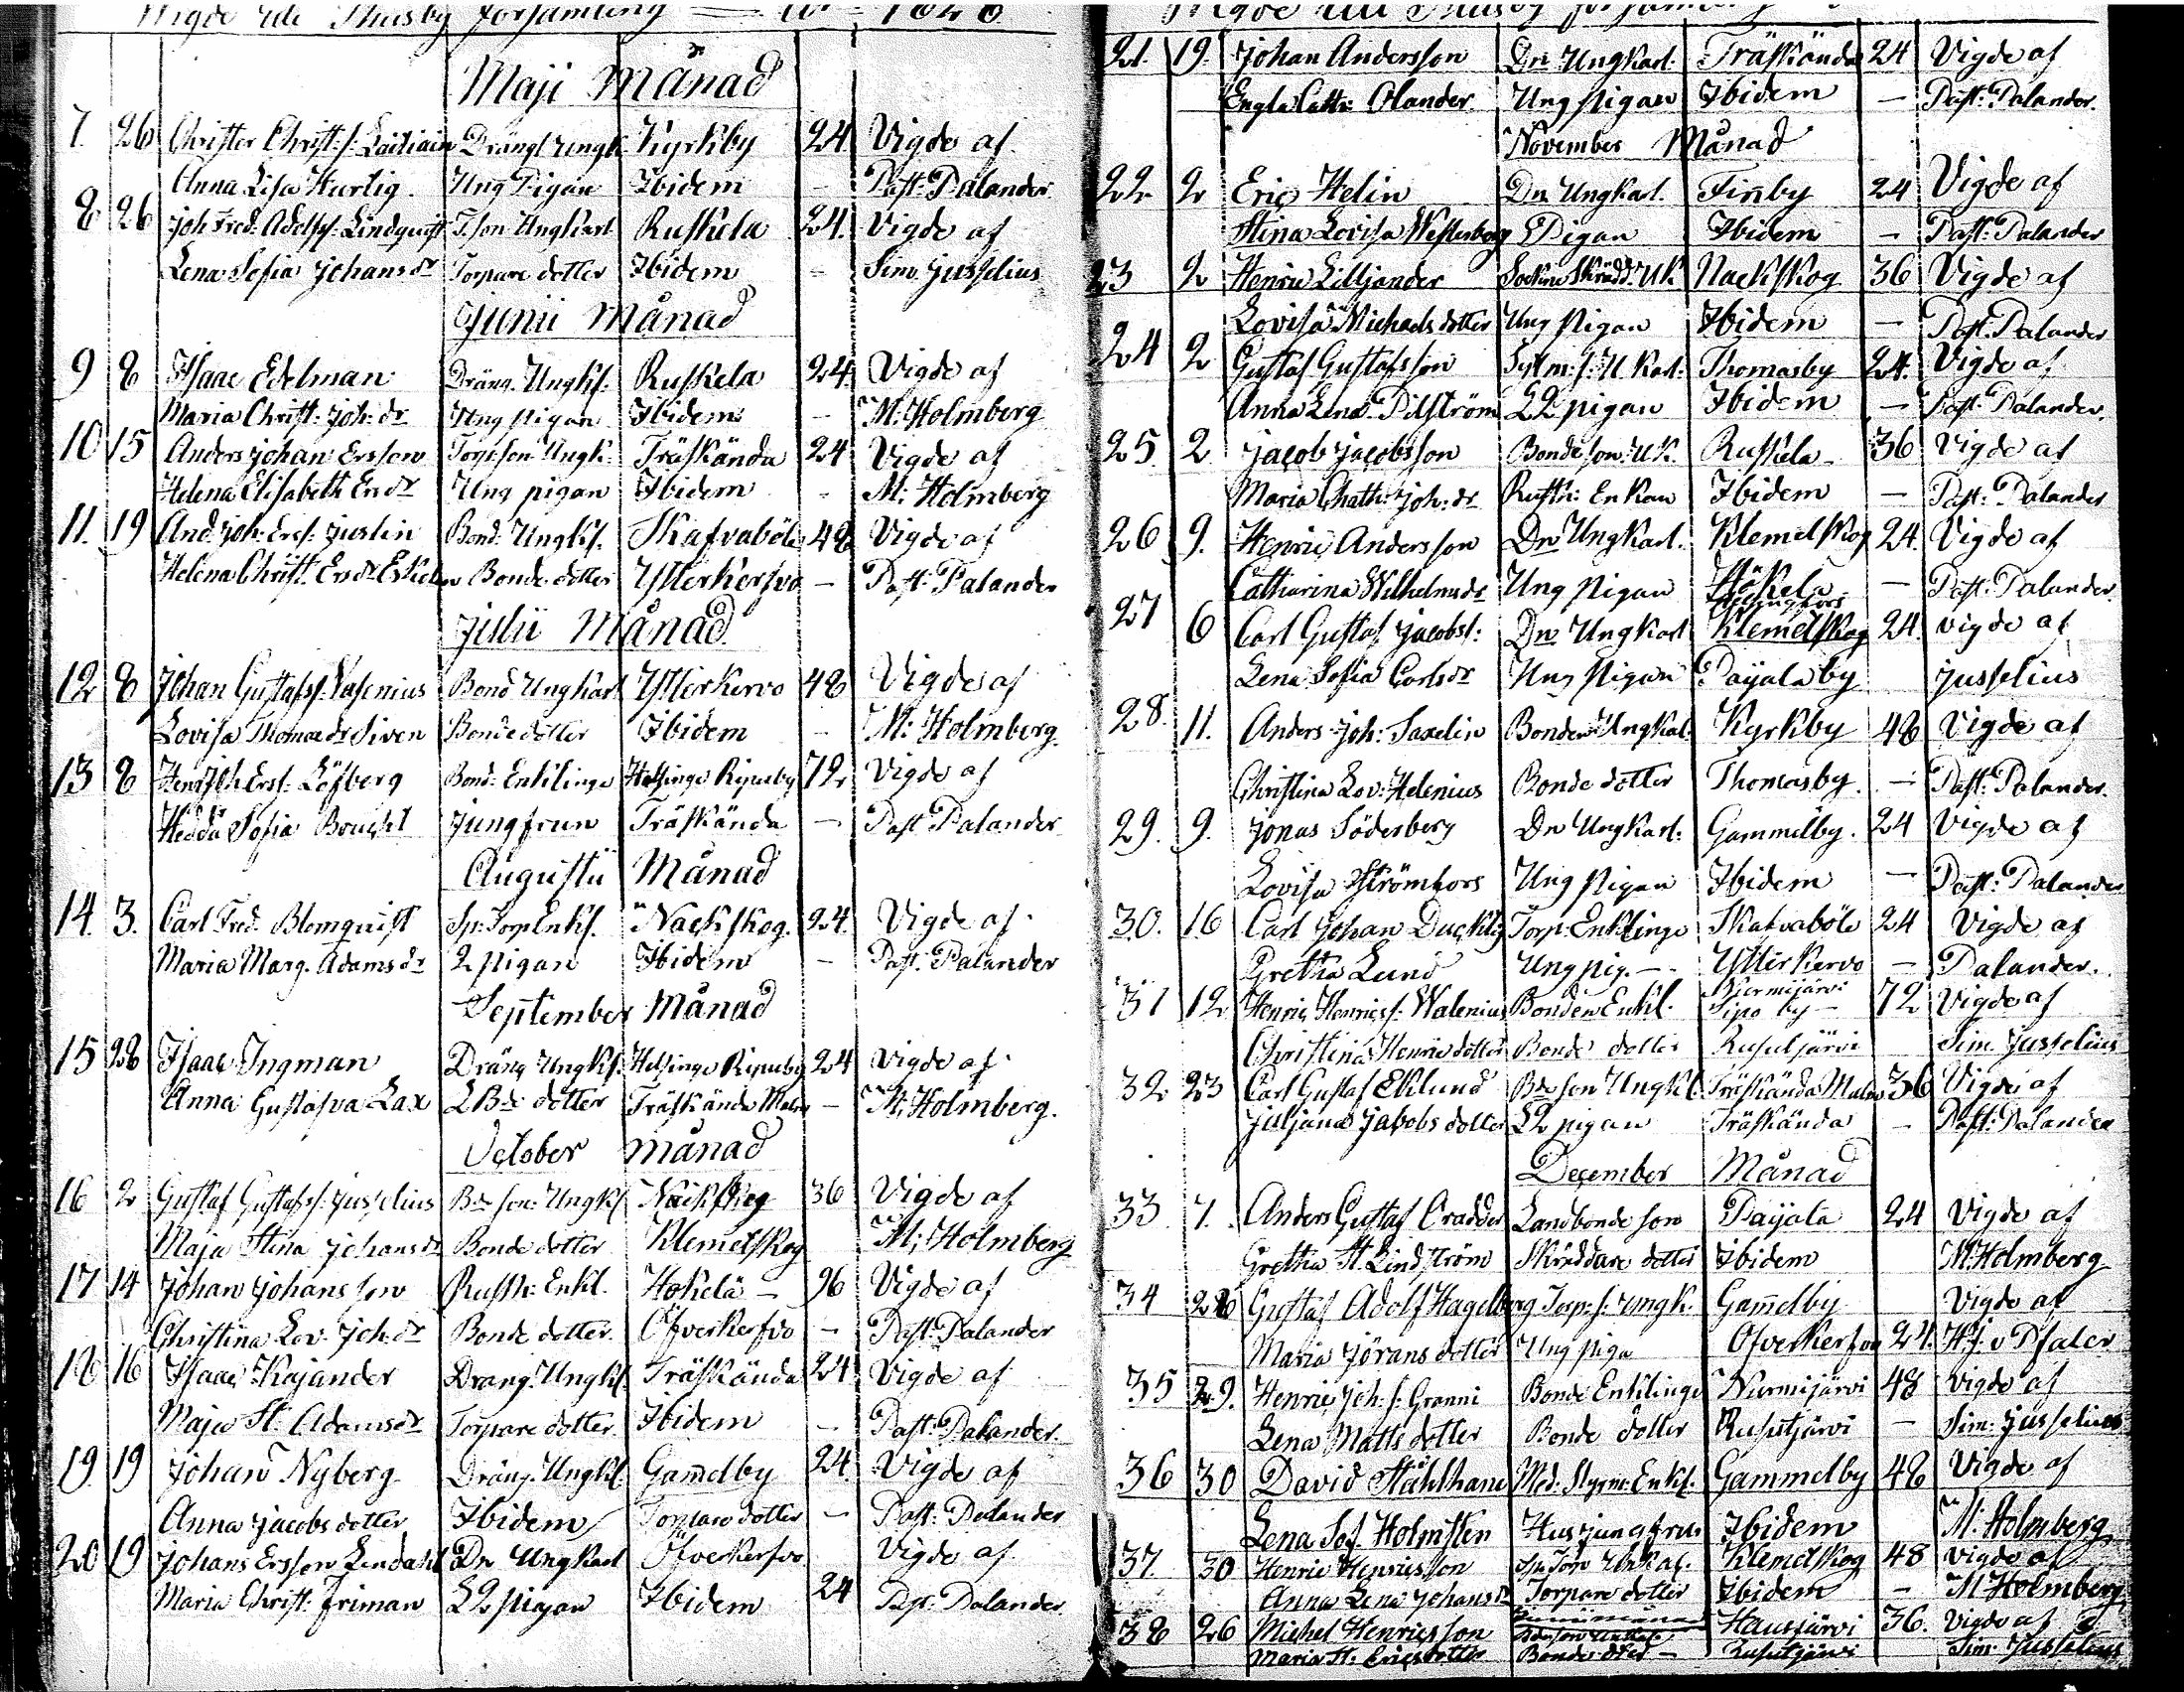 Wigde uti Thusby församling
Maji Månad
7. 26 Christer Christ:s: Drängs Ungk. Kyrkby 24. Vigde af
Anna Lisa Hurtig. Ung Pigan Ibidem – Past: Palander.
8 26 Joh Fred: Adolfs: Lindquist T. son Ungkarl Ruskela 24. Vigde af
Lena Sofia Johansdr Torpare dotter Ibidem – Sim. Jusselius
Junii Månad
9 8 Isaac Edelman Dräng. Ungkl. Ruskela 24. Vigde af
Maria Christ: Joh: dr Ung pigan Ibidem – M: Holmberg
10 15 Anders Johan Ersson Torp: son Ungk: Träskända 24 Vigde af
Helena Elisabeth Ersdr Ung pigan Ibidem – M: Holmberg
11. 19 And: Joh: Ers: Justin Bond: Ungkl. Skafvaböle 48 Vigde af
Helena Christ. Ersdr Bonde dotter Ytterkerfvo – Past: Palander
Julii Månad
12 8 Johan Gustafss: Vasenius Bond Ungkarl Ytterkervo 48 Vigde af
Lovisa Thomasdr Siven Bonde dotter Ibidem – M: Holmberg.
13 8 Henr Joh Erss: Löfberg Bond: Enklinge Helsinge 72 Vigde af
Hedda Sofia Jungfrun Träskända – Past Palander
Augusti Månad
14. 3. Carl Fred. Blomquist Sp: Torp Enkl. Nackskog. 24. Vigde af
Maria Marg. Adamsdr Q pigan Ibidem – Past: Palander
September Månad
15 28 Isaac Ingman Dräng Ungkl. Helsinge 24 Vigde af
Anna Gustafva Lax LBde dotter Träskända Malm – M: Holmberg.
October Månad
16 2 Gustaf Gustafs: Jusselius Bde son: Ungkl Nackskog 36 Vigde af
Maja Stina Johansdr Bonde dotter Klemetskog M: Holmberg
17 14 Johan Johansson Rusth: Enkl. Hökelä – 96 Vigde af
Christina Lov: Joh: dr Bonde dotter. Öfverkerfvo – Past: Palander
18 16 Isaac Kajander Dräng. Ungkl. Träskända 24 Vigde af
Maja St: Adamsdr Torpare dotter. Ibidem – Past: Palander.
19. 19 Johan Nyberg Dräng. Ungkl. Gamelby 24. Vigde af
Anna Jacobs dotter Ibidem Torpare dotter – Past: Palander
20 19 Johans Ersson Lendahl Dr. Ungkarl Öfverkerfvo Vigde af
Maria Christ: Friman LQ pigan Ibidem 24 Past: Palander.
21. 19. Johan Andersson Drn Ungkarl. Träskända 24 Vigde af
Engla Cath: Olander. Ung pigan Ibidem – Past: Palander.
November Månad
22 2 Eric Helin Dn Ungkarl. Finby 24 Vigde af
Stina Lovisa Westerberg Pigan Ibidem – Past: Palander
23 2 Henric Liljander Sockne Skrädd: UK Nackskog 36 Vigde af
Lovisa Michaels dotter Ung pigan Ibidem – Past: Palander
24 2 Gustaf Gustafsson U. Karl: Thomasby 24. Vigde af
Anna Lena Pilström LQ pigan Ibidem – Past: Palander.
25 2. Jacob Jacobsson Bonde son: UK. Ruskela – 36 Vigde af
Maria Chath: Joh: dr Rusth: Enkan Ibidem – Past: Palander
26 9. Henric Andersson Drn Ungkarl. Klemetskog 24. Vigde af
Catharina Wilhelmsdr Ung pigan Hökela – Past: Palander.
27 6 Carl Gustaf Jacobs: Drn Ungkarl Klemetskog 24. vigde af
Lena Sofia Carlsdr Ung pigan Paijala by Jusselius
28. 11. Anders Joh: Saxelin Bonden Ungkal. Kyrkby 48 Vigde af
Christina Lov: Helenius Bonde dotter Thomasby. – Past: Palander.
29. 9. Jonas Söderberg Dn Ungkarl: Gammelby. 24 Vigde af
Lovisa Strömfors Ung pigan Ibidem – Past: Palander
30. 16 Carl Johan Torp: Enklinge Skafvaböle 24 Vigde af
Gretha Lund Ung pig. – Ytterkervo – Palander.
31 12 Henric Henrics: Walenius Bonden Enkl. Nurmijärvi by – 72 Vigde af
Christina Henric dotter Bonde dotter Rusutjärvi Sim. Jusselius
32 23 Carl Gustaf Eklund Bde son Ungkl. Träskända Malm 36 Vigde af
Juljana Jakobs dotter LQ pigan Träskända – Past: Palander
December Månad
33 7. Anders Gustaf Landbonde son Paijala 24 Vigde af
Gretha St. Lindström Skräddare dotter Ibidem M: Holmberg
34 Gustaf Adolf Hagelberg Torp: s: ungk. Gamelby Vigde af
Maria Jörans dotter Ung piga Ofverkerfvo 24. H. J. v Pfaler
35 29. Henric Joh: s: Granni Bonde Enklinge Nurmijärvi 48 Vigde af
Lena Matts dotter Bonde dotter Rusutjärvi – Sim: Jusselius
36 30 David Ståhlhane Enkl. Gammelby 48 Vigde af
Lena Sof. Holmsten Husjungfrun Ibidem M: Holmberg
37. 30 Henric Henricsson Klemetskog 48 vigde af
Anna Lena Johansdr Torpare dotter Ibidem – M Holmberg
38 26 Michel Henricsson Hausjärvi 36. Vigde af
Maria St: Ericsdotter Bonde dotter – Rusutjärvi Sim: Jusselius